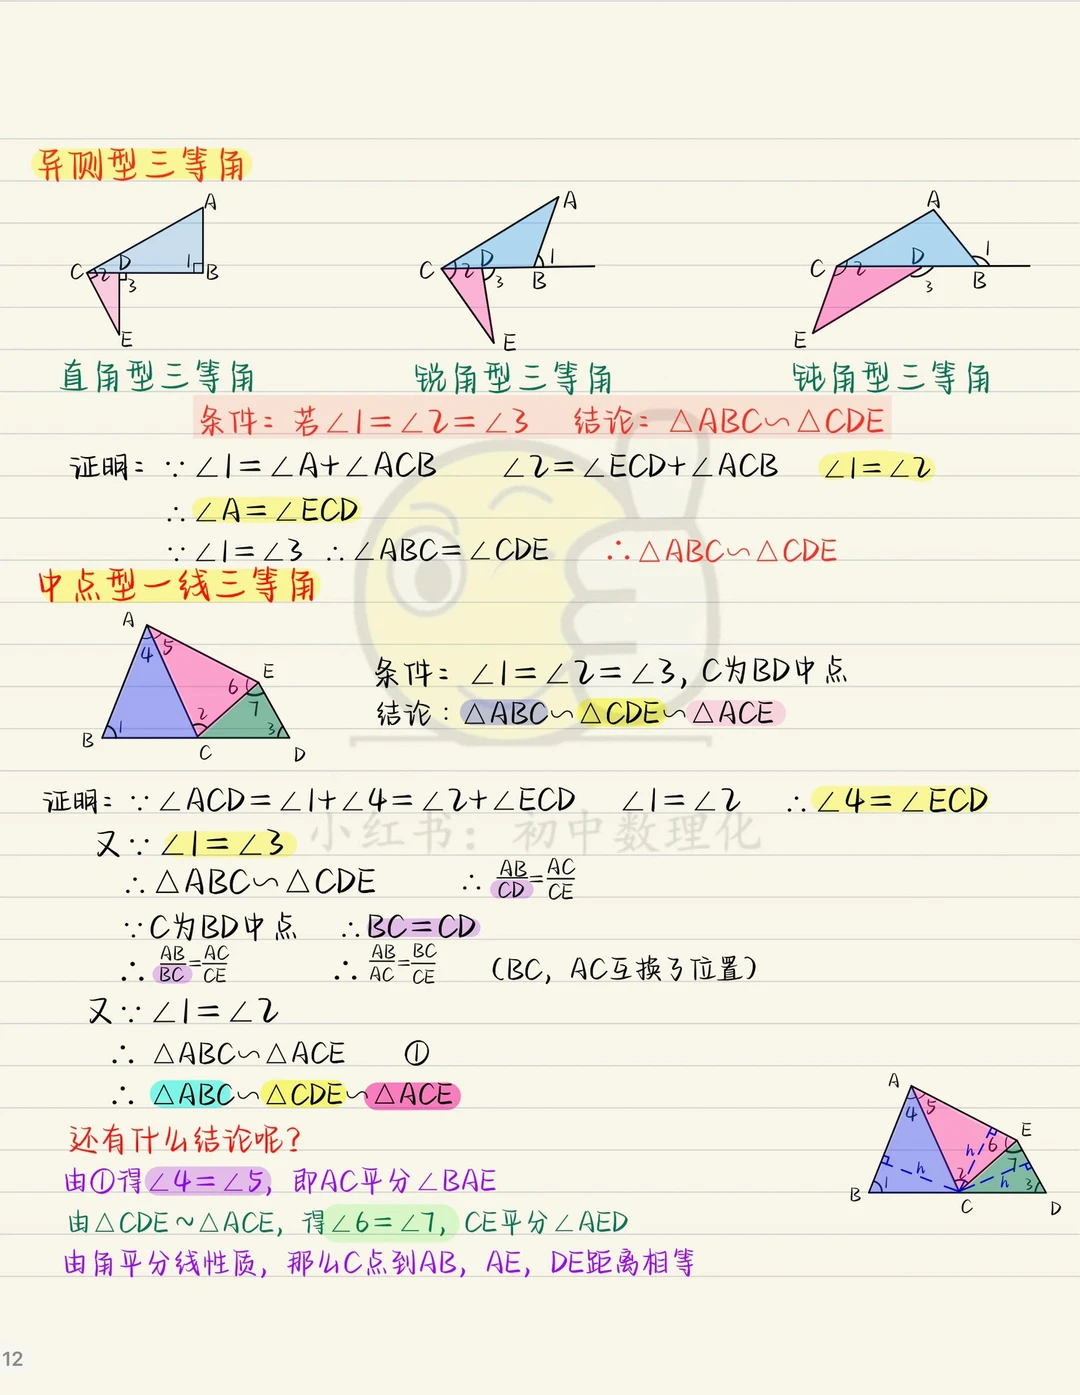 异侧型三等角
A A A
C 2 D 1 B 3 C 2 D 1 3 B C 2 D 1 3 B
E E E
直角型三等角 锐角型三等角 钝角型三等角
条件：若∠1=∠2=∠3 结论：△ABC∽△CDE
证明：∵∠1=∠A+∠ACB ∠2=∠ECD+∠ACB ∠1=∠2
∴∠A=∠ECD
∵∠1=∠3 ∴∠ABC=∠CDE ∴△ABC∽△CDE
中点型一线三等角
A
4 5
E
6 7
B 1 2 3
C D
条件：∠1=∠2=∠3，C为BD中点
结论：△ABC∽△CDE∽△ACE
证明：∵∠ACD=∠1+∠4=∠2+∠ECD ∠1=∠2 ∴∠4=∠ECD
小红书：初中数理化
又∵∠1=∠3
∴△ABC∽△CDE ∴AB/CD=AC/CE
∵C为BD中点 ∴BC=CD
∴AB/BC=AC/CE ∴AB/AC=BC/CE （BC，AC互换了位置）
又∵∠1=∠2
∴△ABC∽△ACE ①
∴△ABC∽△CDE∽△ACE
还有什么结论呢？
由①得∠4=∠5，即AC平分∠BAE
由△CDE~△ACE，得∠6=∠7，CE平分∠AED
由角平分线性质，那么C点到AB，AE，DE距离相等
A
4 5
E
h 6 7
B 1 h 2 h 3
C D
12